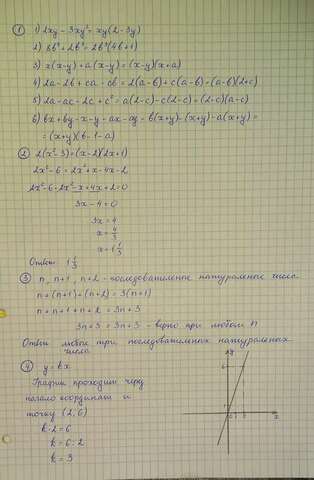 ① 1) 2xy - 3xy² = xy(2 - 3y)
2) 8b⁴ + 2b³ = 2b³(4b + 1)
3) x(x-y) + a(x-y) = (x-y)(x+a)
4) 2a - 2b + ca - cb = 2(a-b) + c(a-b) = (a-b)(2+c)
5) 2a - ac - 2c + c² = a(2-c) - c(2-c) = (2-c)(a-c)
6) bx + by - x - y - ax - ay = b(x+y) - (x+y) - a(x+y) =
= (x+y)(b-1-a)
② 2(x²-3) = (x-2)(2x+1)
2x² - 6 = 2x² + x - 4x - 2
2x² - 6 - 2x² - x + 4x + 2 = 0
3x - 4 = 0
3x = 4
x = 4/3
x = 1 1/3
Ответ: 1 1/3
③ n, n+1, n+2 - последовательные натуральные числа
n + (n+1) + (n+2) = 3(n+1)
n + n + 1 + n + 2 = 3n + 3
3n + 3 = 3n + 3 - верно при любом n
Ответ любые три последовательных натуральных
числа
④ y = kx
График проходит через
начало координат и
точку (2, 6)
k · 2 = 6
k = 6 : 2
k = 3
y
6
x